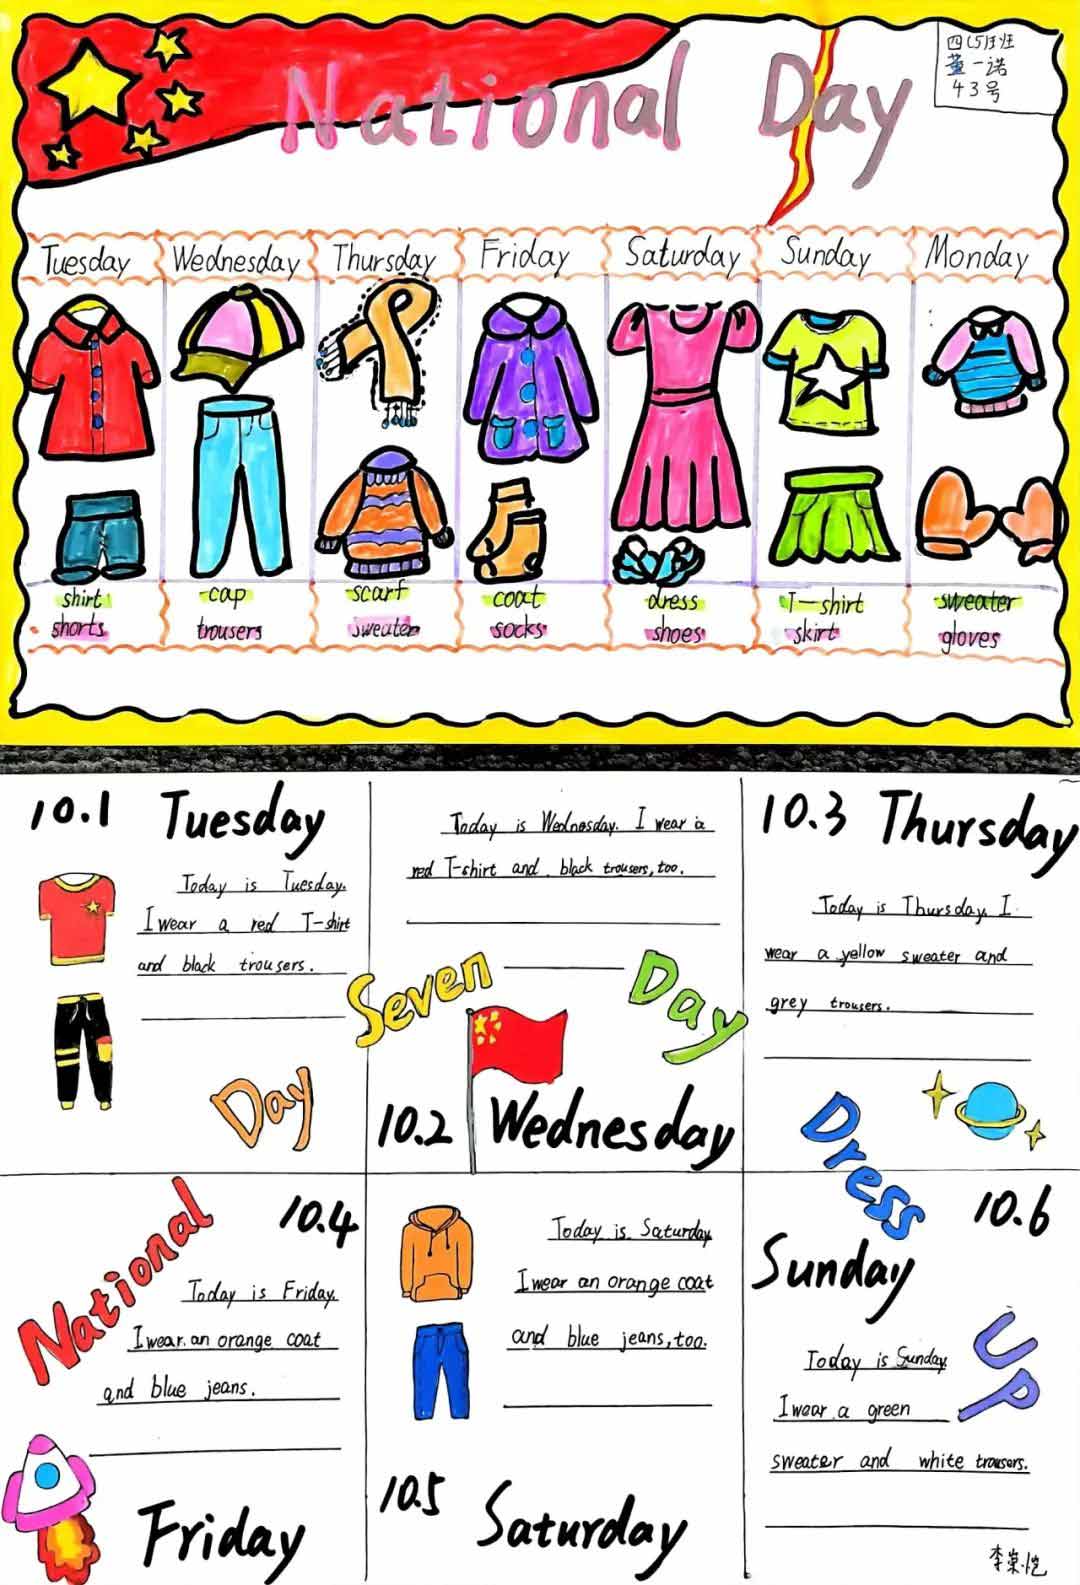 National Day
四(5)班
董一诺
43号
Tuesday Wednesday Thursday Friday Saturday Sunday Monday
shirt cap scarf coat dress T-shirt sweater
shorts trousers sweater socks shoes skirt gloves
10.1 Tuesday
Today is Tuesday.
I wear a red T-shirt
and black trousers.
Today is Wednesday. I wear a
red T-shirt and black trousers, too.
10.2 Wednesday
10.3 Thursday
Today is Thursday. I
wear a yellow sweater and
grey trousers.
Seven
Day
Day
Dress
National
10.4
Today is Friday.
I wear an orange coat
and blue jeans.
Friday
Today is Saturday.
I wear an orange coat
and blue jeans, too.
10.5 Saturday
10.6
Sunday
UP
Today is Sunday.
I wear a green
sweater and white trousers.